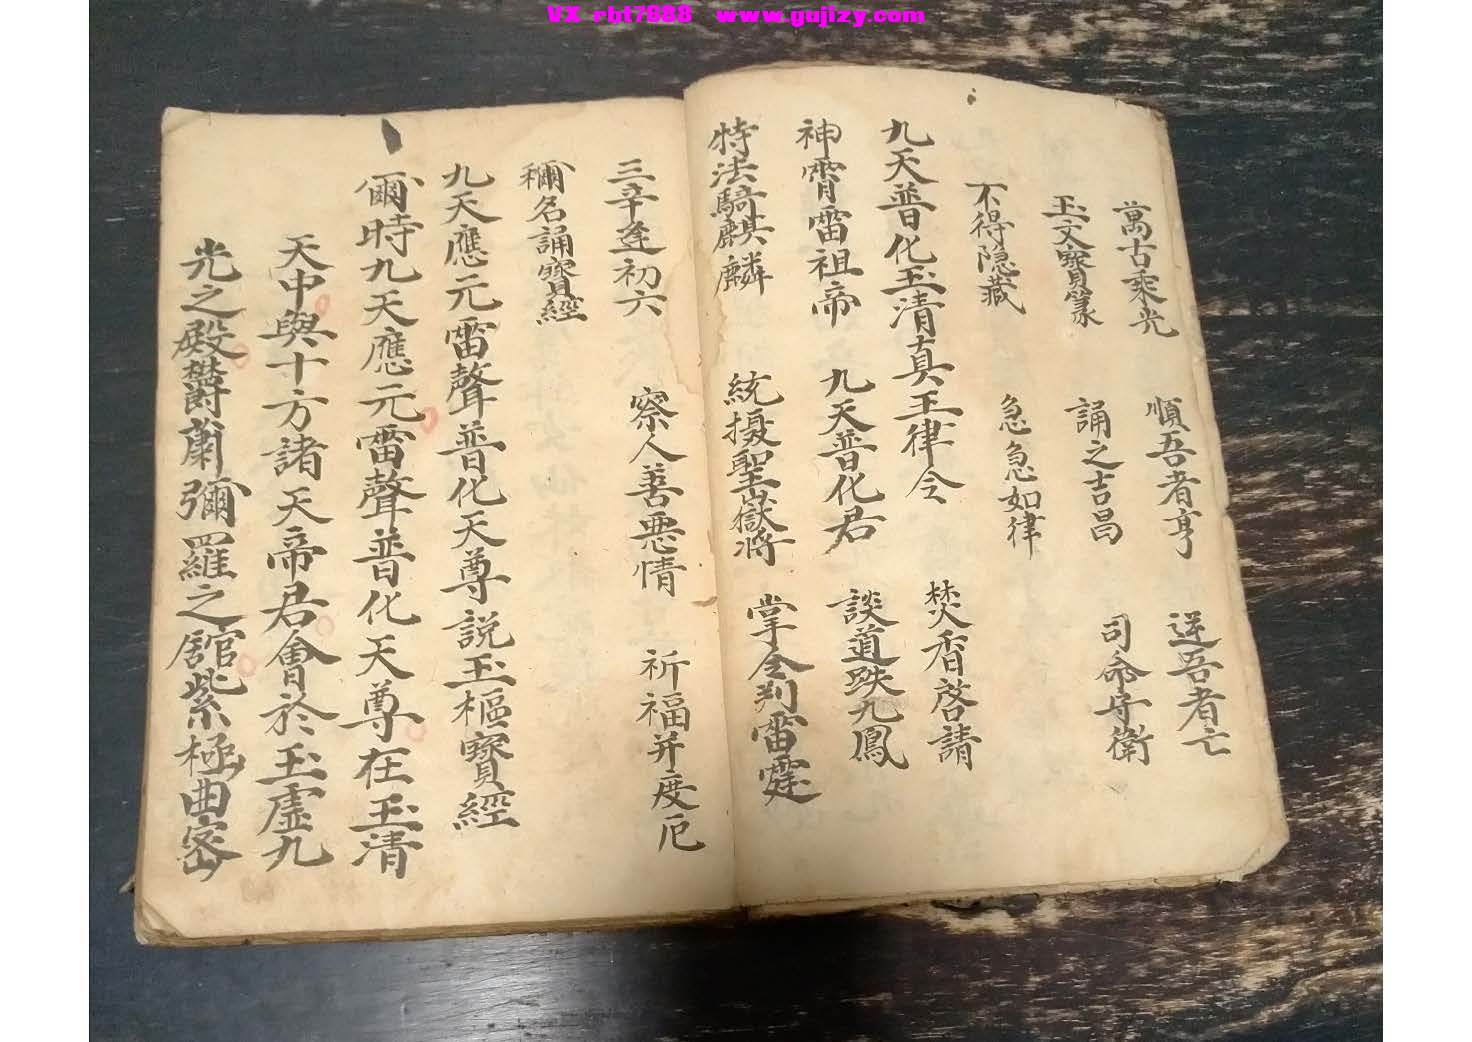 VX-rbt7988 www.gujizy.com
萬古乘光 順吾者亨 逆吾者亡
玉文寶篆 誦之吉昌 司命守衛
不得隐藏 急急如律
九天普化玉清真王律令 焚香啓請
神霄雷祖帝 九天普化君 談道趺九鳳
特法騎麒麟 統摄聖嶽將 掌令判雷霆
三辛逢初六 察人善悪情 祈福并度厄
稱名誦寳經
九天應元雷聲普化天尊說玉樞寳經
爾時九天應元雷聲普化天尊在玉清
天中與十方諸天帝君會於玉虛九
光之殿欝蕭彌羅之舘紫極曲密